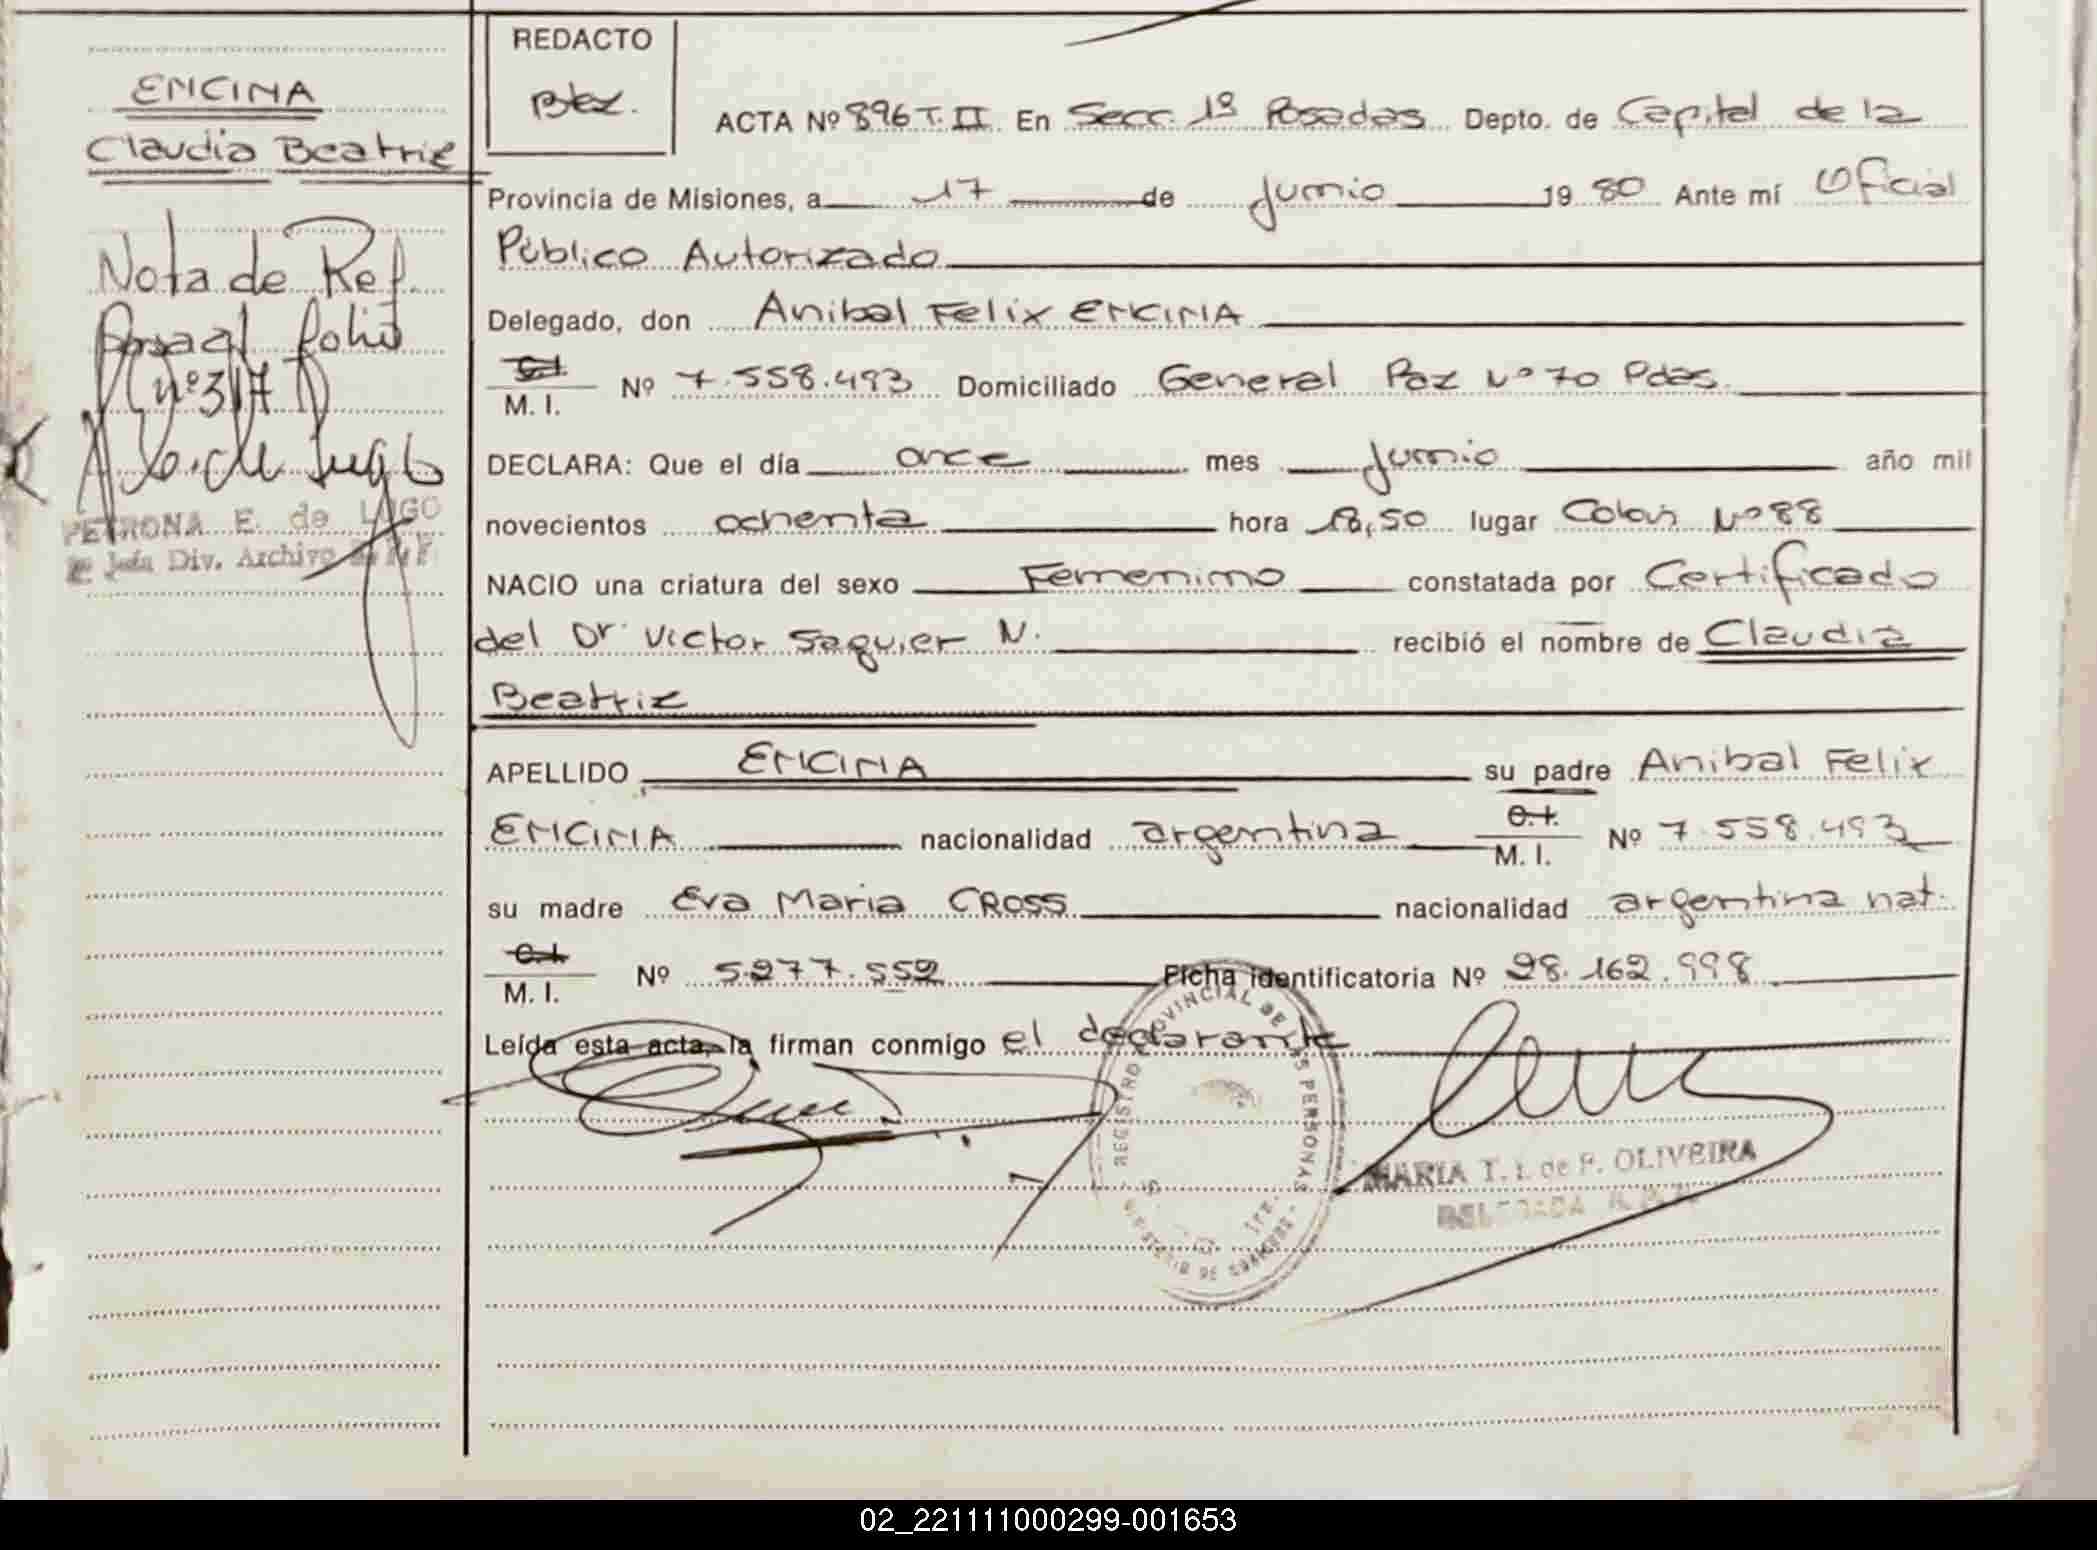 ENCINA
Claudia Beatriz
Nota de Ref
folio
nº 317
PETRONA E. de LUGO
Jefa Div. Archivo
REDACTO
ACTA Nº 896 T. II En Secc. 1ª Posadas Depto. de Capital de la
Provincia de Misiones, a 17 de Junio 1980 Ante mí Oficial
Público Autorizado
Delegado, don Anibal Felix ENCINA
C.I.
M. I. Nº 7.558.493 Domiciliado General Paz Nº 70 Pdas.
DECLARA: Que el día once mes Junio año mil
novecientos ochenta hora 18,50 lugar Colón Nº 88
NACIO una criatura del sexo Femenino constatada por Certificado
del Dr. Victor Saquier N. recibió el nombre de Claudia
Beatriz
APELLIDO ENCINA su padre Anibal Felix
ENCINA nacionalidad argentina C.I. M. I. Nº 7.558.493
su madre Eva Maria CROSS nacionalidad argentina nat.
C.I.
M. I. Nº 5.277.552 Ficha identificatoria Nº 28.162.998
Leída esta acta, la firman conmigo el declarante
REGISTRO PROVINCIAL DE LAS PERSONAS
MINISTERIO DE GOBIERNO
MARIA T. I. de P. OLIVEIRA
DELEGADA
02_221111000299-001653